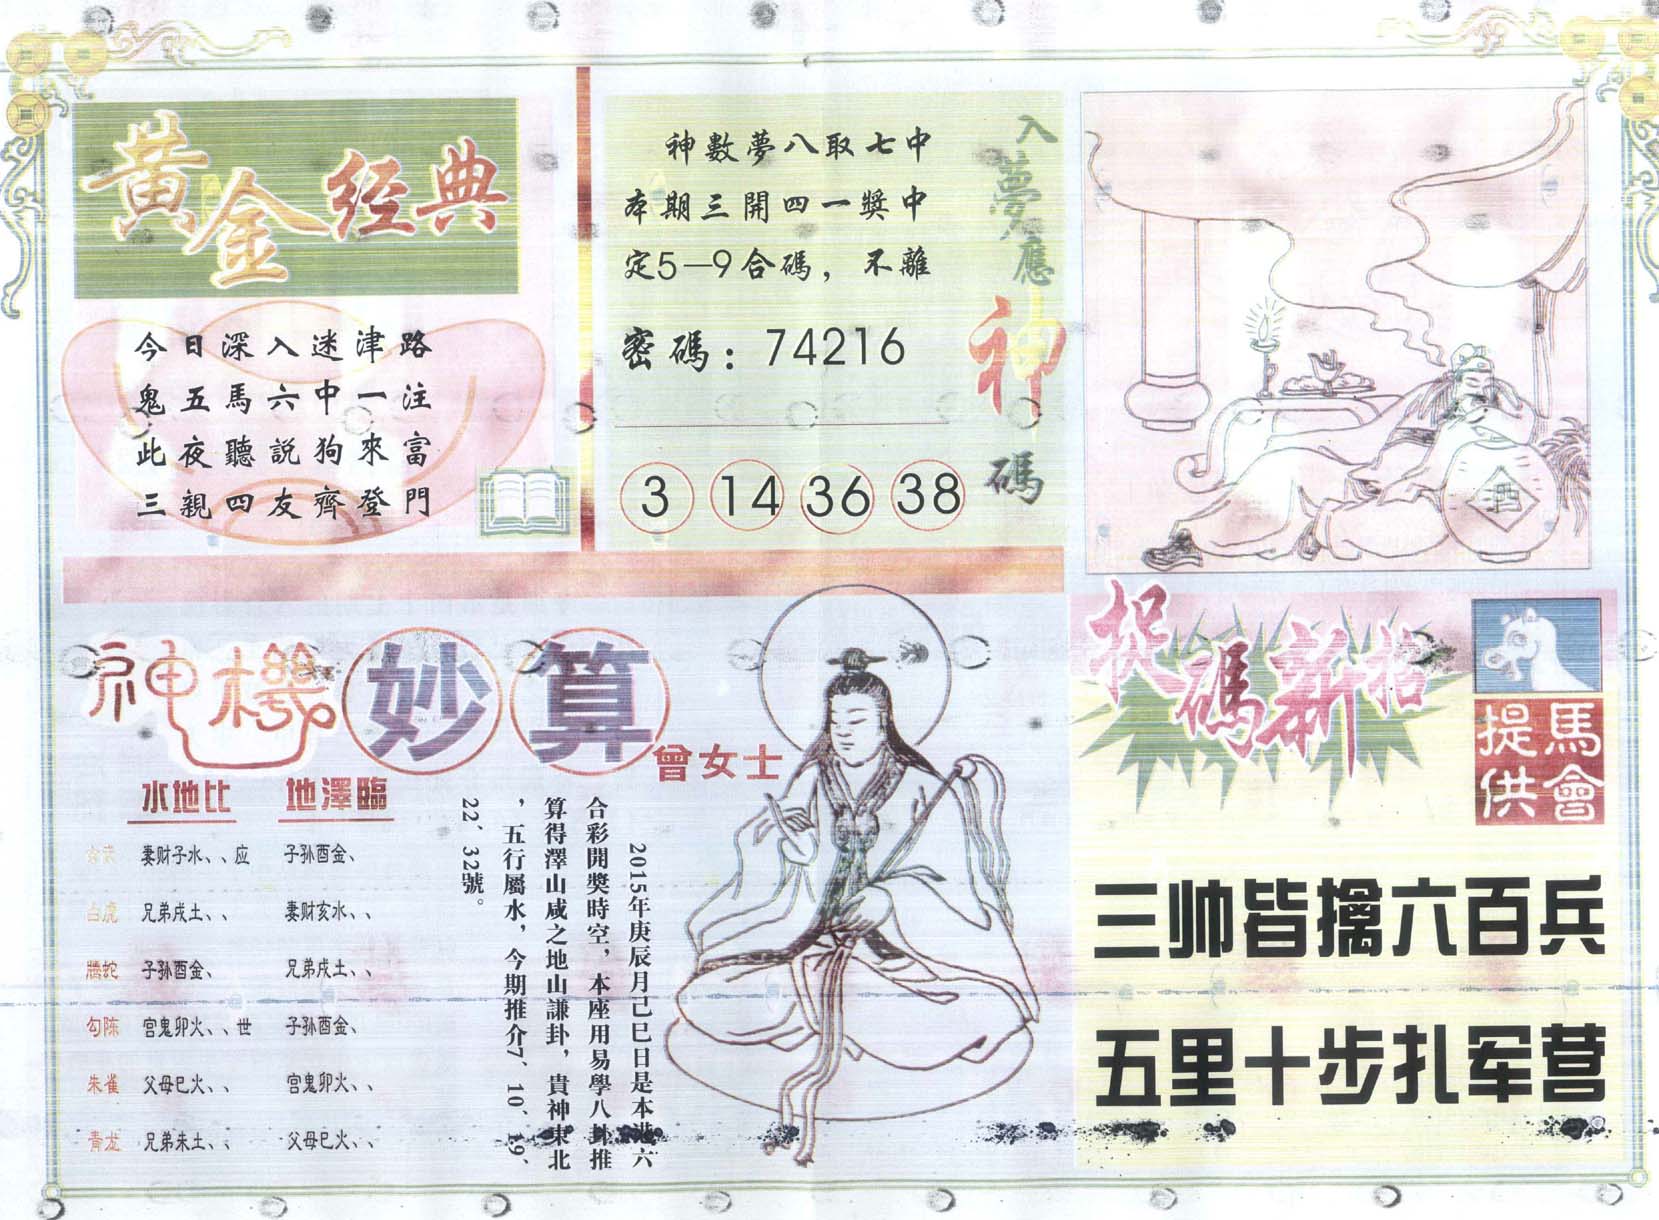 黃金经典
今日深入迷津路
鬼五馬六中一注
此夜聽説狗來富
三親四友齊登門
神數夢八取七中
本期三開四一獎中
定5—9合碼，不離
密碼：74216
3 14 36 38
入夢應神碼
酒
神機妙算
曾女士
水地比 地澤臨
妻财子水、、应 子孙酉金、
白虎 兄弟戌土、、 妻财亥水、、
腾蛇 子孙酉金、 兄弟戌土、、
勾陈 宫鬼卯火、、世 子孙酉金、
朱雀 父母巳火、、 宫鬼卯火、、
青龙 兄弟未土、、 父母巳火、、
2015年庚辰月己巳日是本港六
合彩開獎時空，本座用易學八卦推
算得澤山咸之地山謙卦，貴神東北
，五行屬水，今期推介7、10、19、
22、32號。
捉碼新招
馬會提供
三帅皆擒六百兵
五里十步扎军营